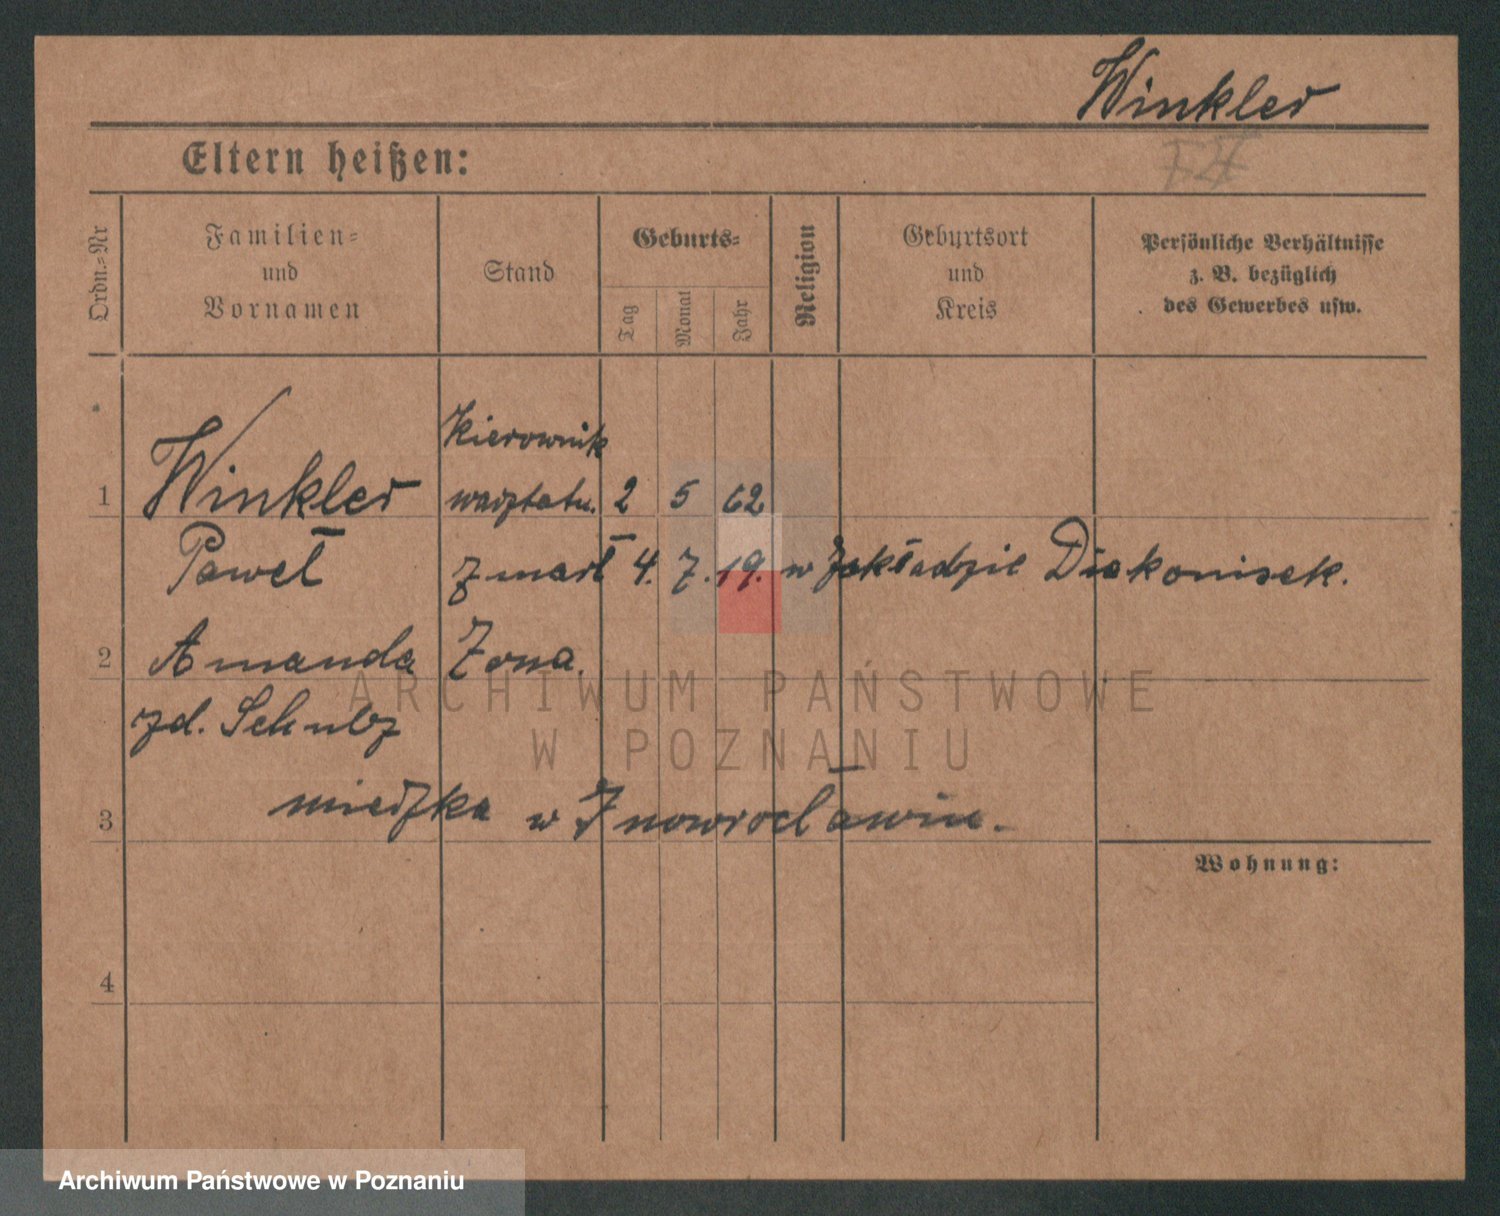 Winkler
Eltern heißen:
Ordn.=Nr
Familien=
und
Vornamen
Stand
Geburts=
Tag
Monat
Jahr
Religion
Geburtsort
und
Kreis
Persönliche Verhältnisse
z. B. bezüglich
des Gewerbes usw.
Kierownik
1 Winkler warsztatu. 2 5 62
Paweł zmarł 4. 7. 19. w Zakładzie Diakonisek.
2 Amanda Żona.
zd. Schulz
3 mieszka w Inowrocławiu.
Wohnung:
4
ARCHIWUM PAŃSTWOWE
W POZNANIU
Archiwum Państwowe w Poznaniu